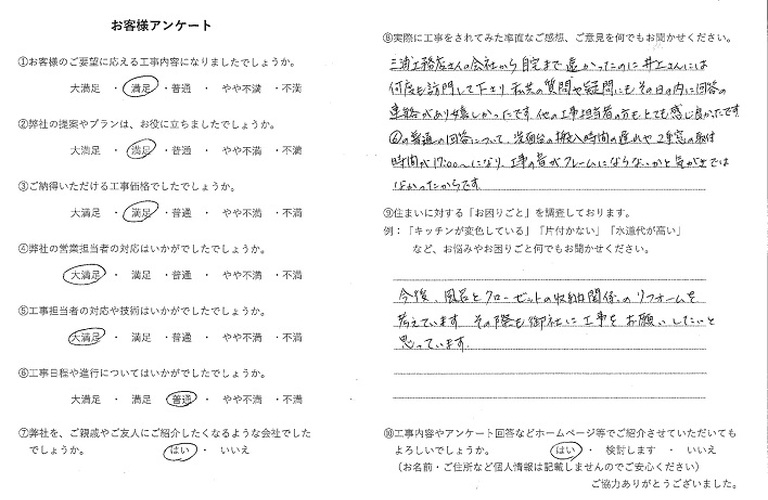 お客様アンケート
①お客様のご要望に応える工事内容になりましたでしょうか。
大満足 ・ 満足 ・普通 ・ やや不満 ・不満
②弊社の提案やプランは、お役に立ちましたでしょうか。
大満足 ・ 満足 ・普通 ・ やや不満 ・不満
③ご納得いただける工事価格でしたでしょうか。
大満足 ・ 満足 ・普通 ・ やや不満 ・不満
④弊社の営業担当者の対応はいかがでしたでしょうか。
大満足 ・ 満足 ・普通 ・ やや不満 ・不満
⑤工事担当者の対応や技術はいかがでしたでしょうか。
大満足 ・ 満足 ・普通 ・ やや不満 ・不満
⑥工事日程や進行についてはいかがでしたでしょうか。
大満足 ・ 満足 ・普通 ・ やや不満 ・不満
⑦弊社を、ご親戚やご友人にご紹介したくなるような会社でした
でしょうか。 はい ・ いいえ
⑧実際に工事をされてみた率直なご感想、ご意見を何でもお聞かせください。
三浦工務店さんの会社から自宅まで遠かったのに井上さんには
何度も訪問して下さり私共の質問や疑問にもその日の内に回答の
連絡があり嬉しかったです。他の工事担当者の方もとても感じ良かったです
⑥の普通の回答について、洗面台の搬入時間の遅れや2重窓の取付
時間が17:00〜になり、工事の音がクレームにならないかと気が気では
なかったからです
⑨住まいに対する「お困りごと」を調査しております。
例：「キッチンが変色している」「片付かない」「水道代が高い」
など、お悩みやお困りごと何でもお聞かせください。
今後、風呂とクローゼットの収納関係のリフォームを
考えています その際も御社に工事をお願いしたいと
思っています.
⑩工事内容やアンケート回答などホームページ等でご紹介させていただいても
よろしいでしょうか。 はい ・ 検討します ・ いいえ
（お名前・ご住所など個人情報は記載しませんのでご安心ください）
ご協力ありがとうございました。